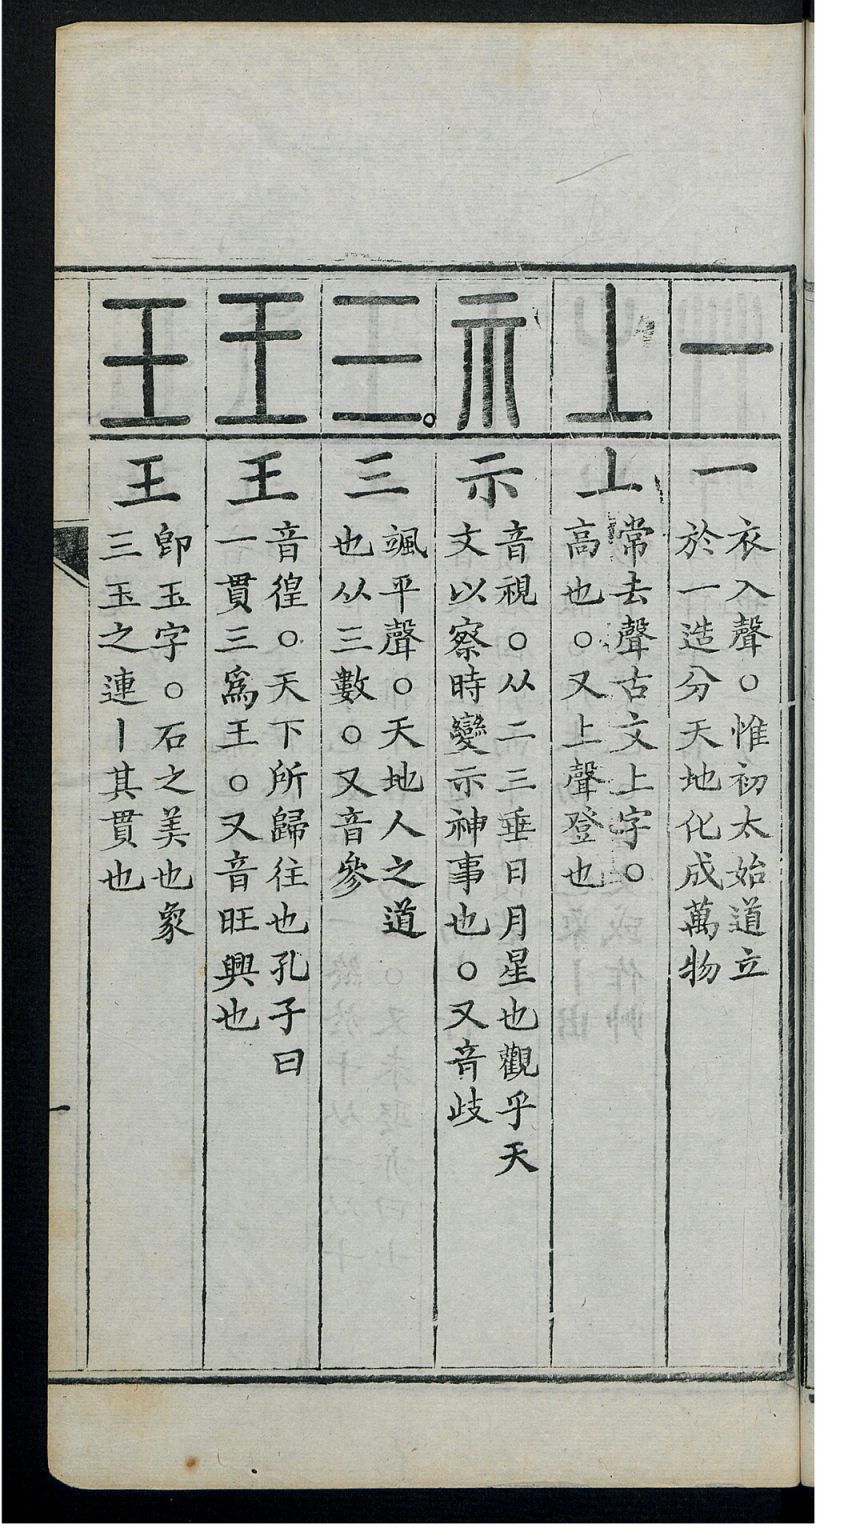 一
一
衣入聲○惟初太始道立
於一造分天地化成萬物
丄
丄
常去聲古文上字○
高也○又上聲登也
示
示
音視○从二三垂日月星也觀乎天
文以察時變示神事也○又音歧
三
三
颯平聲○天地人之道
也从三數○又音參
王
王
音徨○天下所歸往也孔子曰
一貫三爲王○又音旺興也
王
王
卽玉字○石之美也象
三玉之連丨其貫也
一